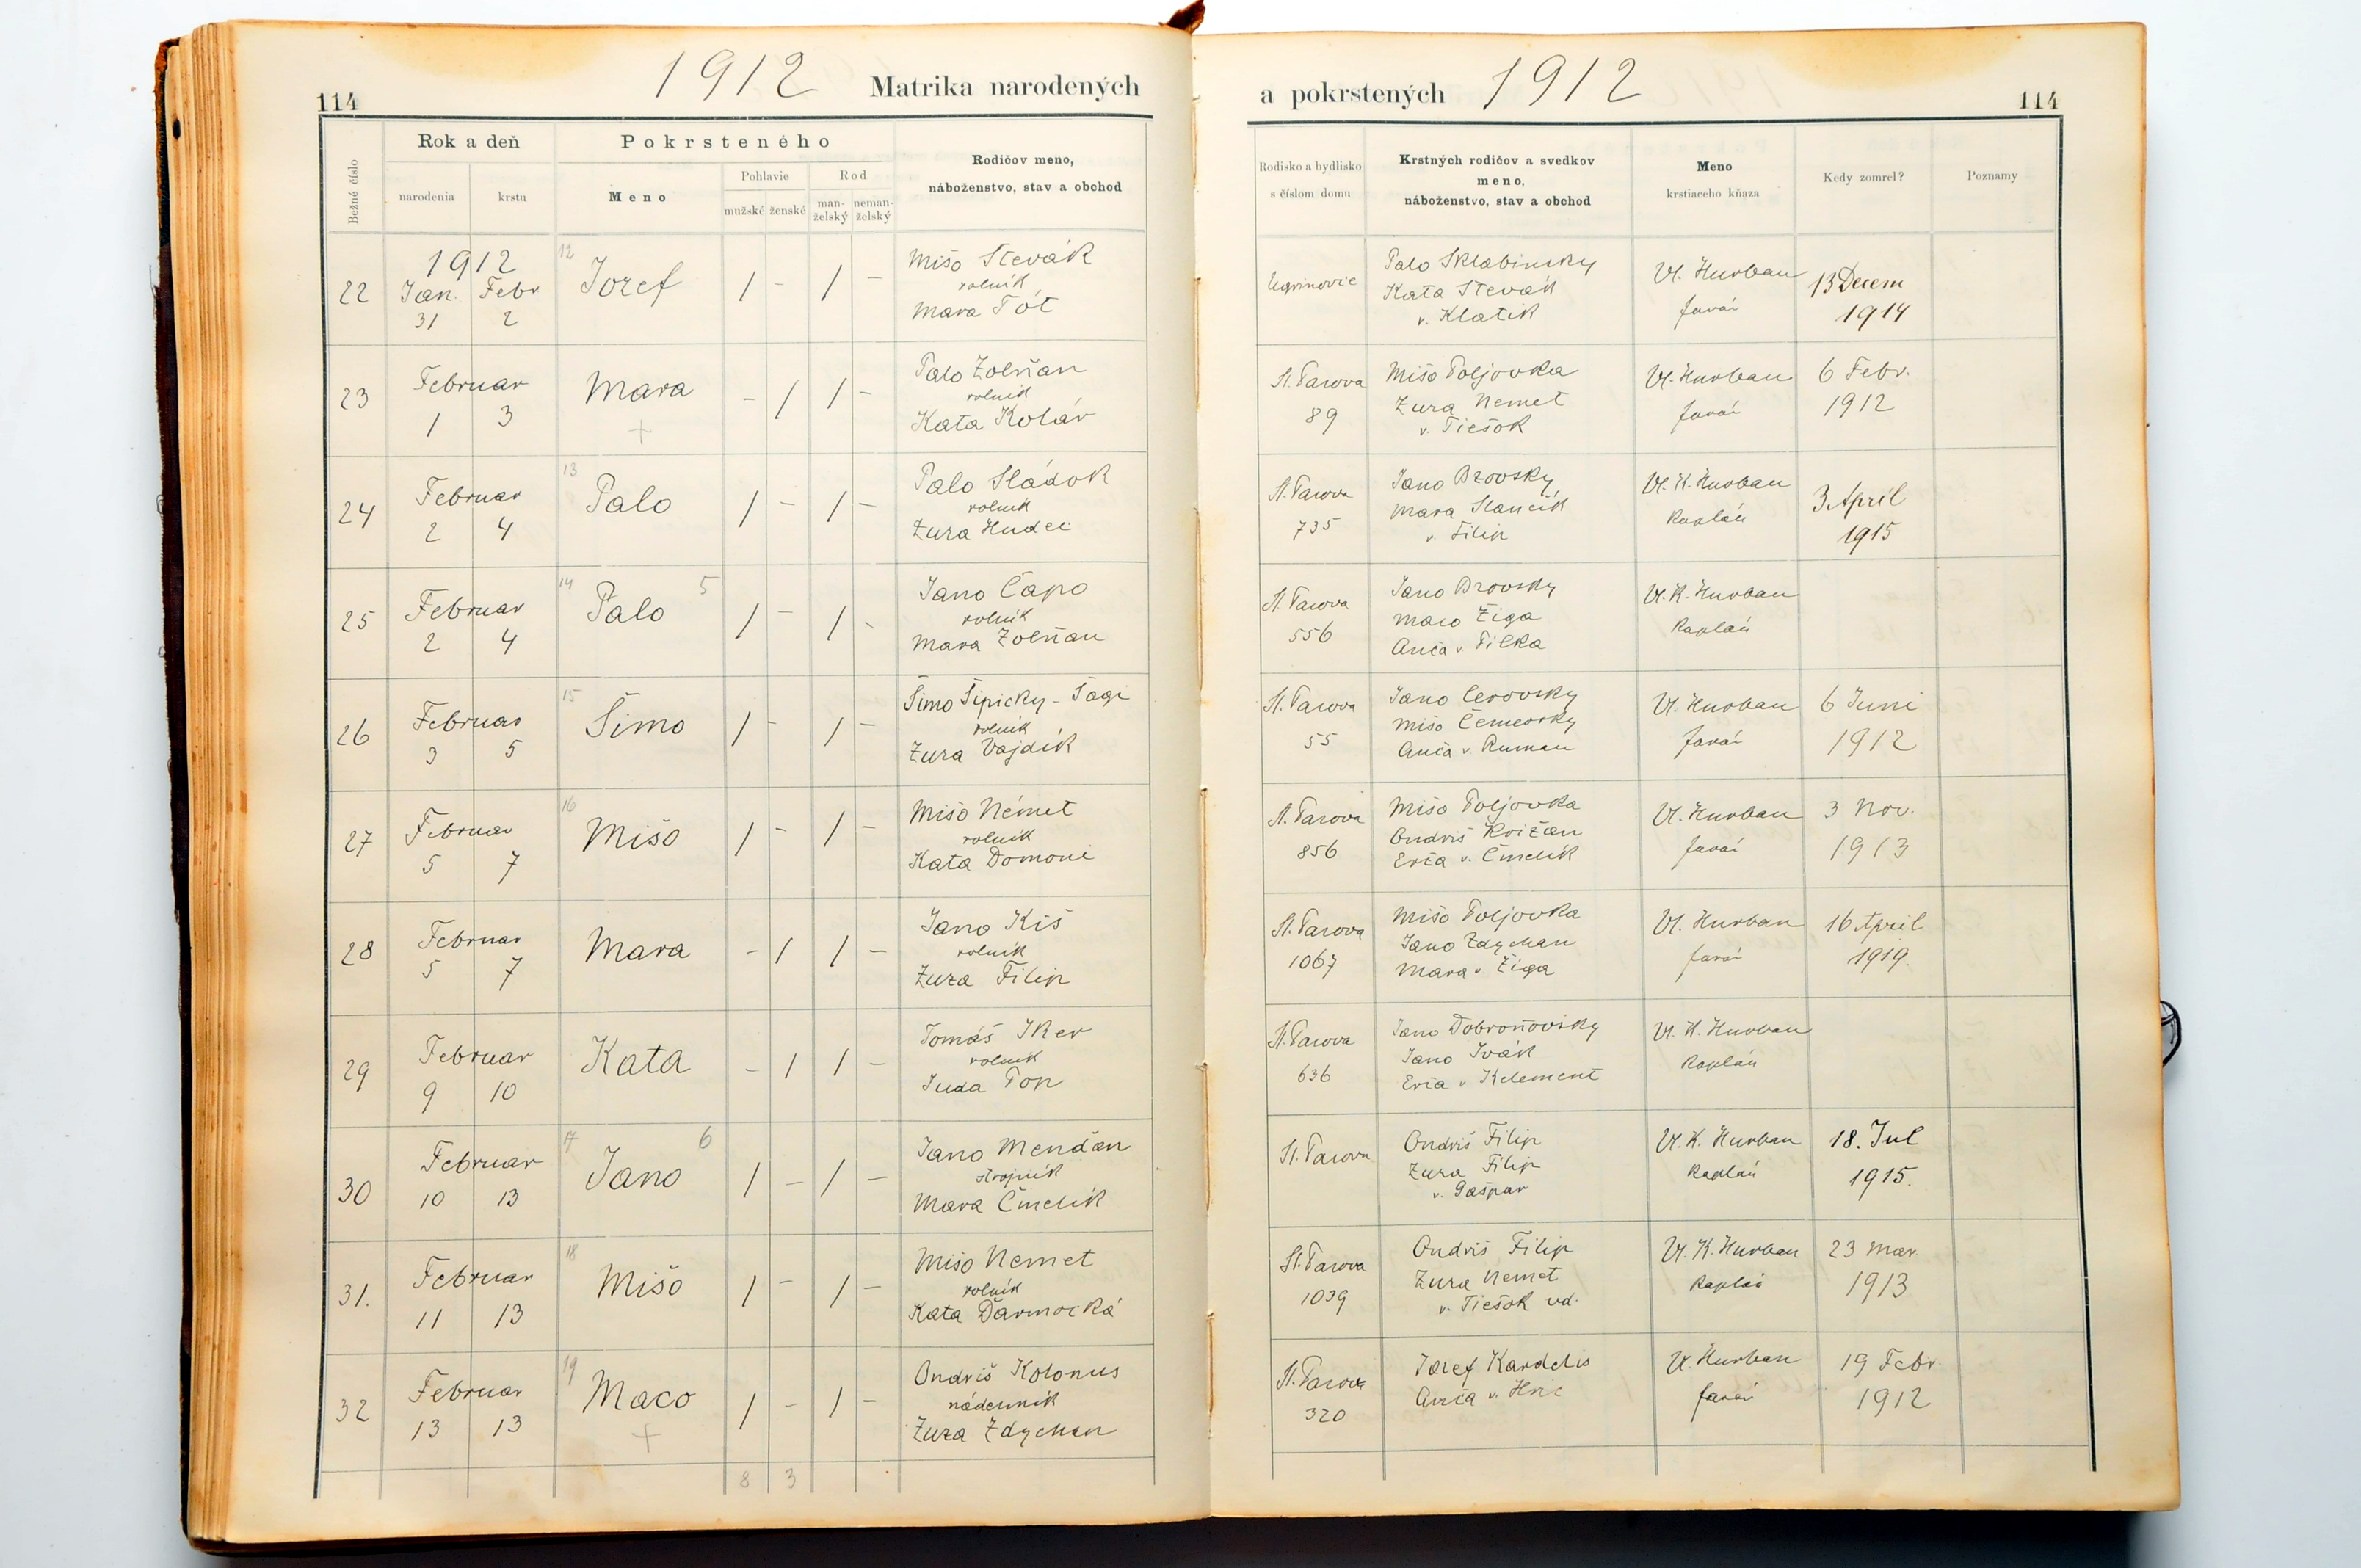 1912 Matrika narodených
114
Bežné číslo
Rok a deň
narodenia krstu
Pokrsteného
Meno
Pohlavie
mužské ženské
Rod
man-želský neman-želský
Rodičov meno,
náboženstvo, stav a obchod
22
1912
Jan. Febr
31 2
12
Jozef
/ - / -
Mišo Stevák
rolník
Mara Tót
23
Februar
1 3
Mara
+
- / / -
Palo Zolňan
rolník
Kata Kolár
24
Februar
2 4
13
Palo
/ - / -
Palo Sládok
rolník
Zuza Hudec
25
Februar
2 4
14
Palo 5
/ - / -
Jano Čapo
rolník
Mara Zolňan
26
Februar
3 5
15
Šimo
/ - / -
Šimo Šipicky - Šagi
rolník
Zuza Vajdík
27
Februar
5 7
16
Mišo
/ - / -
Mišo Német
rolník
Kata Domoni
28
Februar
5 7
Mara
- / / -
Jano Kiš
rolník
Zuza Filip
29
Februar
9 10
Kata
- / / -
Tomáš
rolník
Juda
30
Februar
10 13
17
Jano 6
/ - / -
Jano Mendan
strojník
Mara Čmelík
31.
Februar
11 13
18
Mišo
/ - / -
Mišo Nemet
rolník
Kata Ďarmocká
32
Februar
13 13
19
Maco
+
/ - / -
Ondriš Kolonus
nádenník
Zuza Zdychan
8 3
a pokrstených 1912
114
Rodisko a bydlisko
s číslom domu
Krstných rodičov a svedkov
meno,
náboženstvo, stav a obchod
Meno
krstiaceho kňaza
Kedy zomrel?
Poznamy
Palo Sklabinsky
Kata Stevák
v. Klatik
Vl. Hurban
farár
13 Decem
1914
St. Pazova
89
Mišo Poljovka
Zuza Nemet
v. Tiešok
Vl. Hurban
farár
6 Febr.
1912
St. Pazova
735
Jano Brovsky
Mara Slančík
v. Filip
Vl. K. Hurban
kaplán
3 April
1915
St. Pazova
556
Jano Brovsky
Maco Žiga
Anča v. Filka
Vl. K. Hurban
kaplán
St. Pazova
55
Jano Cerovsky
Mišo
Anča v. Ruman
Vl. Hurban
farár
6 Juni
1912
St. Pazova
856
Mišo Poljovka
Ondriš Križan
Erža v. Čmelík
Vl. Hurban
farár
3 Nov.
1913
St. Pazova
1067
Mišo Poljovka
Jano Zdychan
Mara v. Žiga
Vl. Hurban
farár
16 April
1919.
St. Pazova
636
Jano Dobroňovsky
Jano Ivák
Erža v Klement
Vl. K. Hurban
kaplán
St. Pazova
Ondriš Filip
Zuza Filip
v. Gašpar
Vl. K. Hurban
kaplán
18. Jul
1915.
St. Pazova
1039
Ondriš Filip
Zuza Nemet
v. Tiešok vd.
Vl. K. Hurban
kaplán
23 Mar.
1913
St. Pazova
320
Jozef Kardelis
Anča v.
Vl. Hurban
farár
19 Febr.
1912